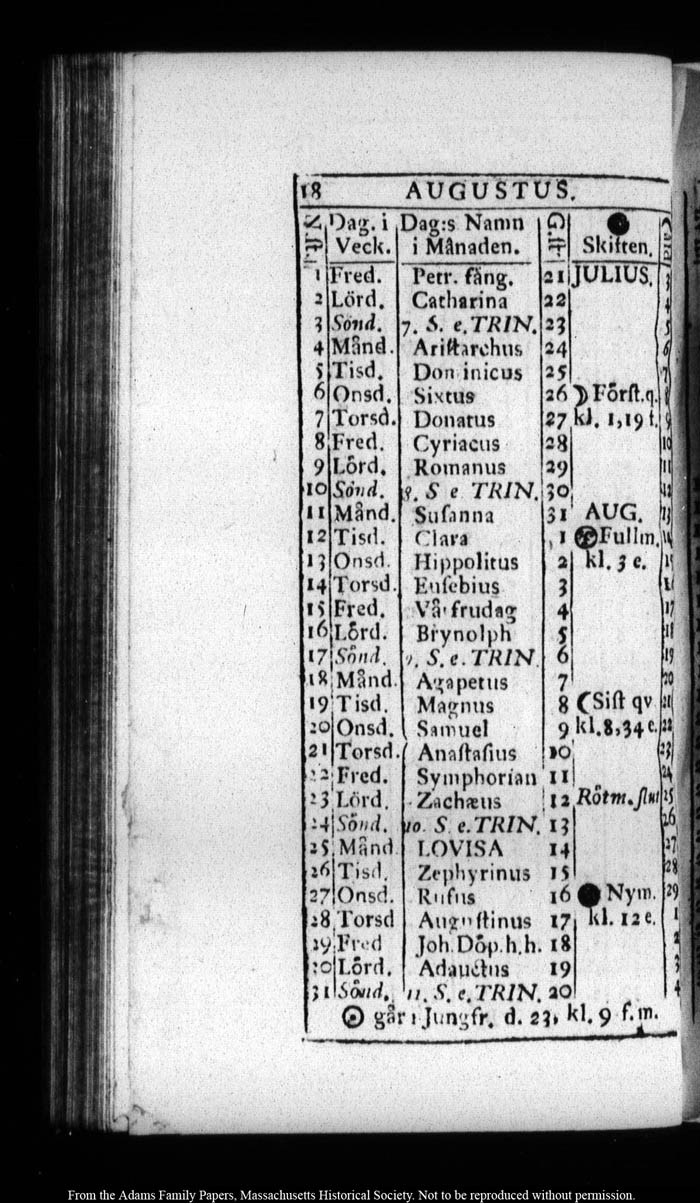 18 AUGUSTUS.
N.ſt. Dag. i Veck. Dag:s Namn i Månaden. G.ſt. Skiften.
1 Fred. Petr. fång. 21 JULIUS. 3
2 Lörd. Catharina 22 4
3 Sönd. 7. S. e. TRIN. 23 5
4 Månd. Ariſtarchus 24 6
5 Tisd. Dominicus 25 7
6 Onsd. Sixtus 26 ☽ Förſt.q. 8
7 Torsd. Donatus 27 kl. 1,19 f. 9
8 Fred. Cyriacus 28 10
9 Lörd. Romanus 29 11
10 Sönd. 8. S e TRIN. 30 12
11 Månd. Suſanna 31 AUG. 13
12 Tisd. Clara 1 Fullm. 14
13 Onsd. Hippolitus 2 kl. 3 e. 15
14 Torsd. Euſebius 3 16
15 Fred. Vårfrudag 4 17
16 Lörd. Brynolph 5 18
17 Sönd. 9. S. e. TRIN. 6 19
18 Månd. Agapetus 7 20
19 Tisd. Magnus 8 ☾ Siſt qv 21
20 Onsd. Samuel 9 kl. 8,34 e. 22
21 Torsd. Anaſtaſius 10 23
22 Fred. Symphorian 11 24
23 Lörd. Zachæus 12 Rötm. ſlut 25
24 Sönd. 10. S. e. TRIN. 13 26
25 Månd LOVISA 14 27
26 Tisd. Zephyrinus 15 28
27 Onsd. Rufus 16 Nym. 29
28 Torsd Auguſtinus 17 kl. 12 e. 1
29 Fred Joh. Döp. h. h. 18 2
30 Lörd. Adauctus 19 3
31 Sönd. 11. S. e. TRIN. 20 4
☉ går i Jungfr. d. 23, kl. 9 f. m.
From the Adams Family Papers, Massachusetts Historical Society. Not to be reproduced without permission.